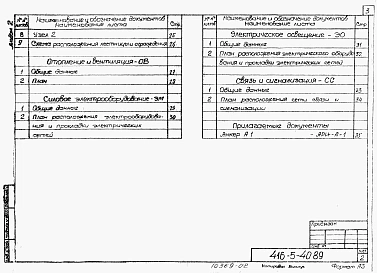 3
№№ листа
Наименование и обозначение документов
Наименование листа
Стр.
8 Узел 2 25
9 Схема расположения лестницы и ограждения 26
Отопление и вентиляция - ОВ
1 Общие данные 27
2 План 28
Силовое электрооборудование - ЭМ
1 Общие данные 29
2 План расположения электрооборудова- 30
ния и прокладки электрических
сетей
Наименование и обозначение документов
Наименование листа
Стр.
Электрическое освещение - ЭО
1 Общие данные 31
2 План расположения электрического оборудо- 32
вания и прокладки электрических сетей
Связь и сигнализация - СС
1 Общие данные 33
2 План расположения сети связи и 34
сигнализации
Прилагаемые документы
Анкер А1 35
Привязан
416-5-40.89
Лист
2
10369-02
Копировал
Формат А3